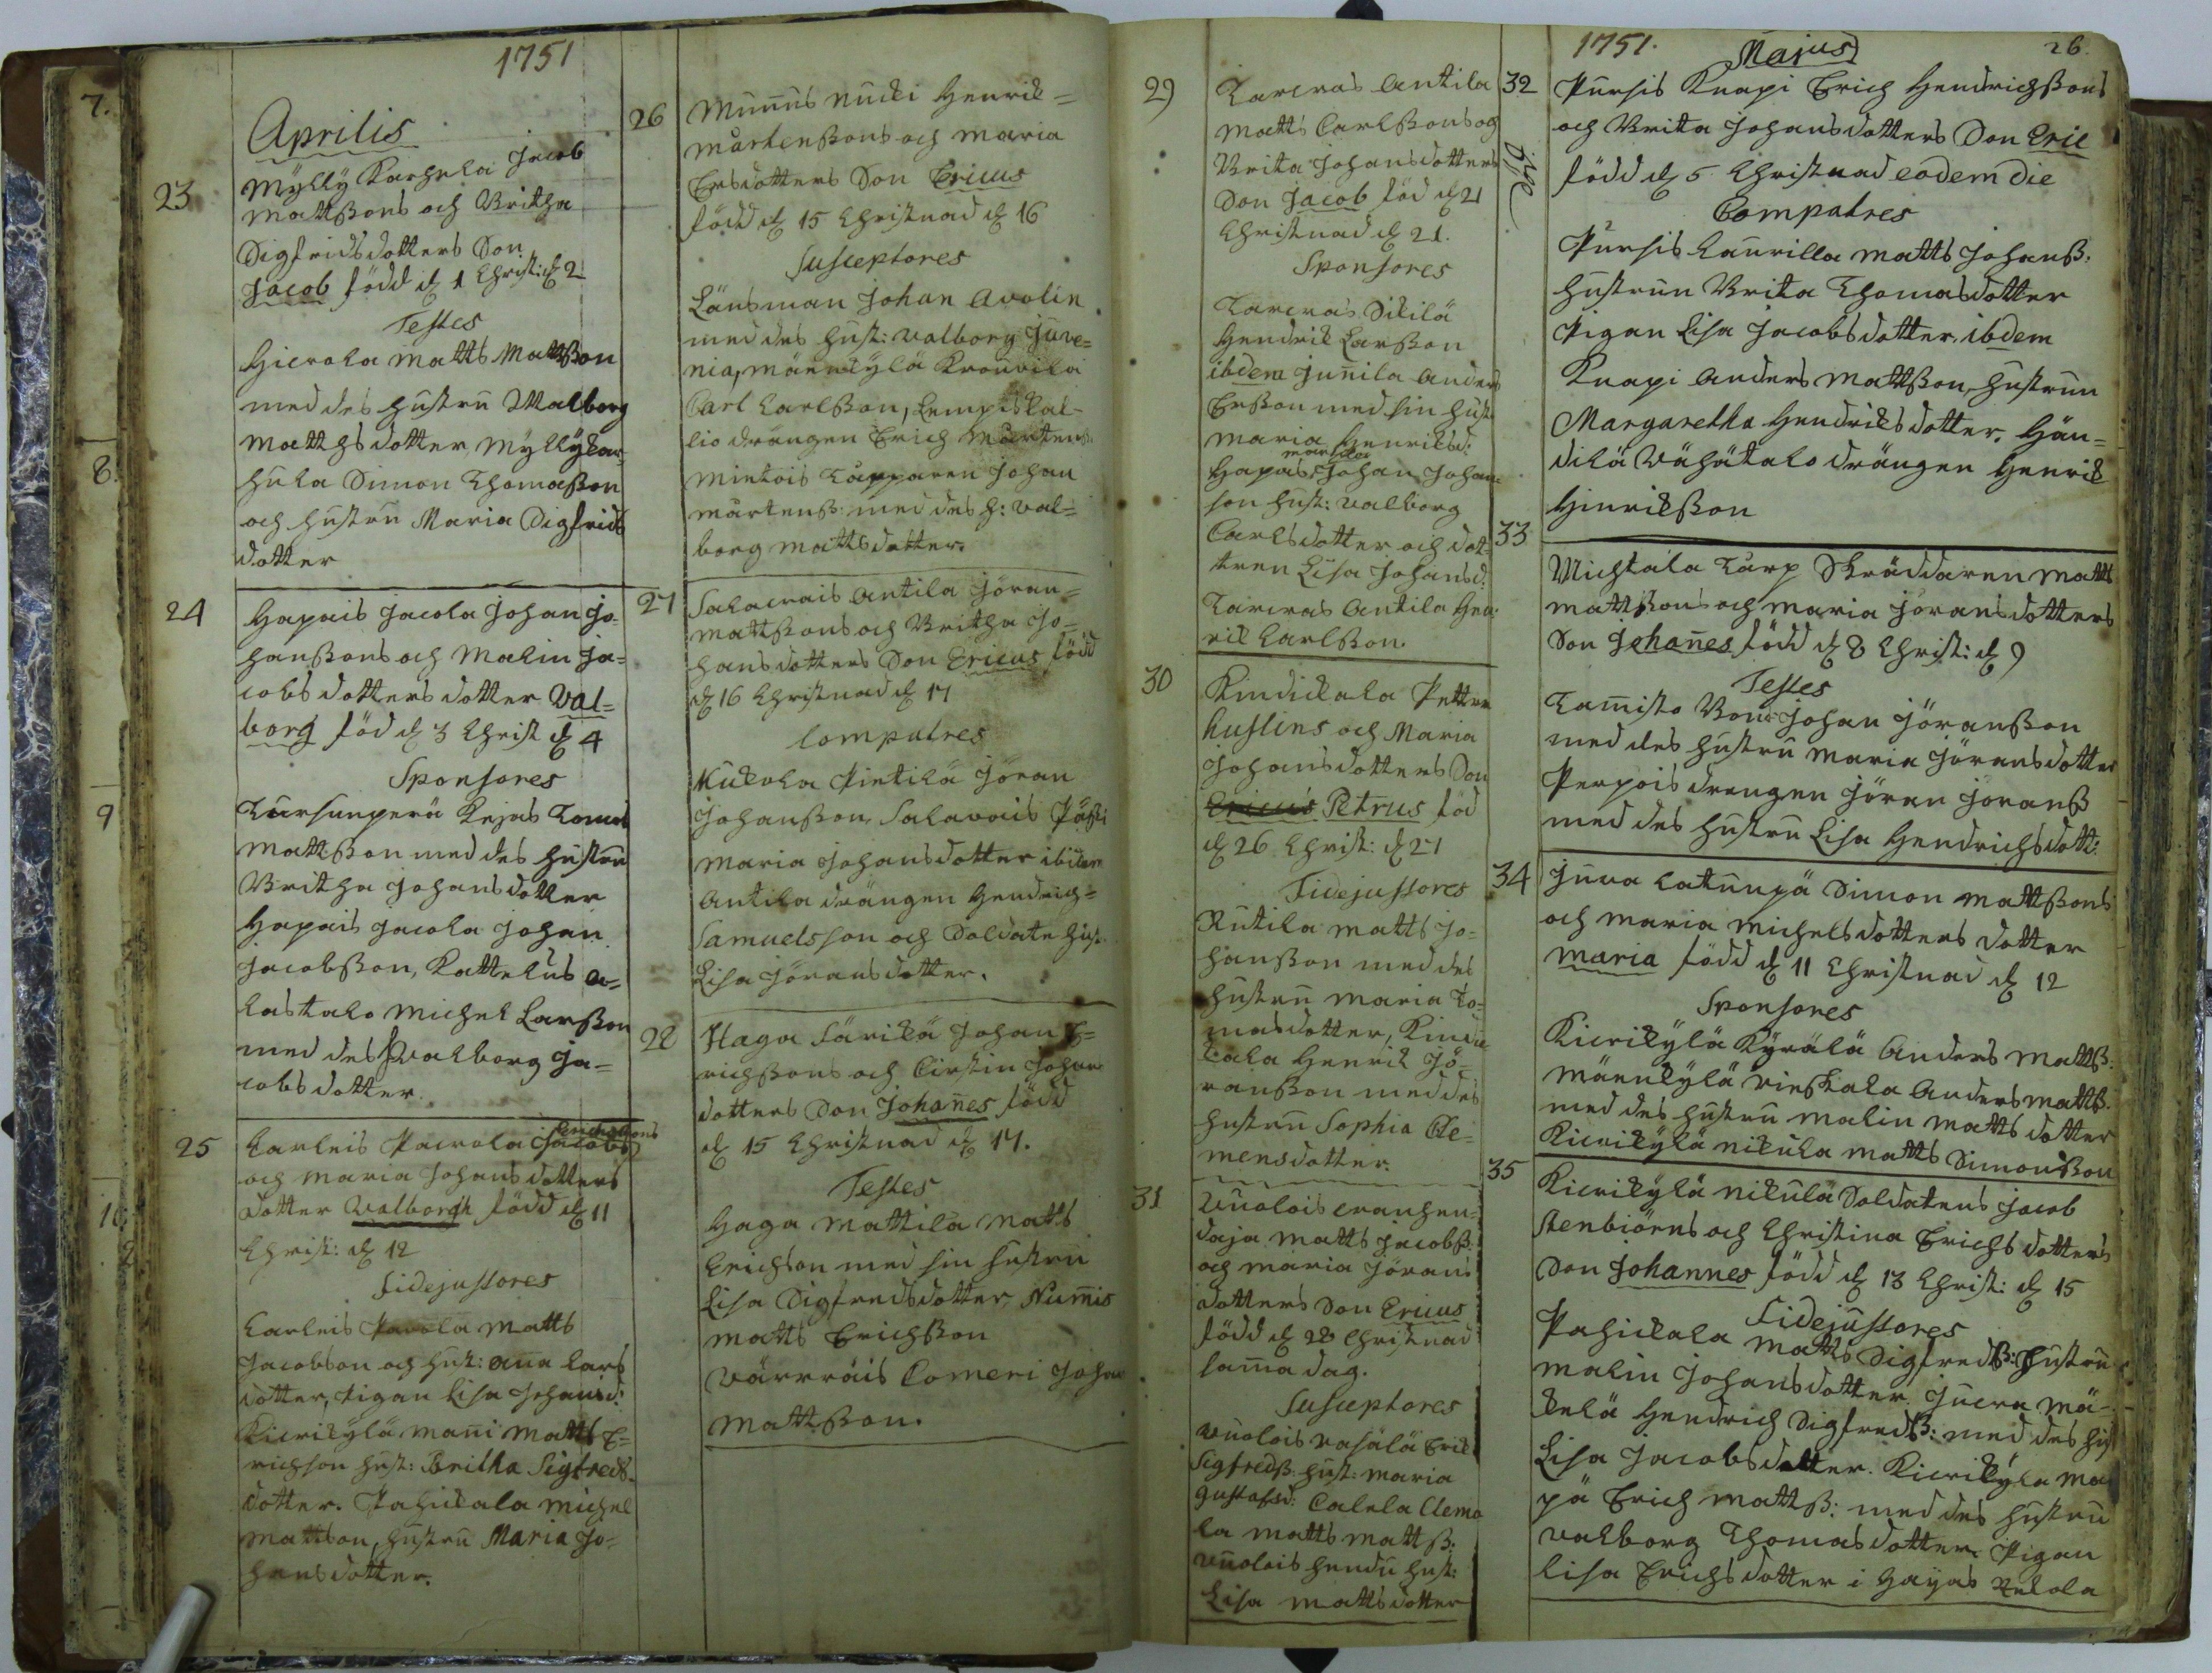 1751
Aprilis
23
Mylly Karhula Jacob
Mattßons och Britha
Sigfridsdotters Son
Jacob född d 1 Christ: d 2
Testes
Hierola Matts Mattßon
med des hustru Walborg
Matthsdotter Myllykar=
hula Simon Thomaßon
och hustru Maria Sigfrids
dotter
24
Hapais Jacola Johan Jo=
hanßons och Malin Ja=
cobs dotters dotter Val=
borg föd d 3 Christ d 4
Sponsores
Matßon med des hustru
Britha Johansdotter
Hapais Jacola Johan
Jacobßon, Kattelus a=
lastalo Michel Larßon
med des h Valborg Ja=
cobs dotter.
25
Karleis Pacrola Jacobs
Erichßons
och Maria Johansdotters
dotter Valborgh född d 11
Christ: d 12
Fidejussores
Karleis Parola Matts
Jacobson och hust: Ana Lars
dotter, Pigan Lisa Johansd:
Kierikylä Mani Matts E=
richson hust: Britha Sigfreds
dotter. Pahickala Michel
Mattson, hustru Maria Jo=
hansdotter.
26
Munus nucki Henrik=
Mårtenßons och Maria
Ersdotters Son Ericus
född d 15 Christnad d 16
Susceptores
Länsman Johan Avolin
med des hust: Valborg Juve=
nia, Mäenkylä Krouvila
Carl Carlßon, Lempis kal=
lio drängen Erich Mårtenß.
Mintois Tapparen Johan
Mårtenß: med des h: Val=
borg Mattsdotter.
27
Salavais Antila Jöran=
Mattßons och Britha Jo=
hansdotters Son Ericus född
d 16 Christnad d 17
Compatres
Kukola Pintilä Jöran
Johanßon Salavais
Maria Johansdotter ibidem
Antila drängen Hendrich=
Samuelsson och Soldate hust.
Lisa Jöransdotter.
28
Haga Särikä Johan E=
richßons och Cirstin Johans
dotters Son Johañes född
d 15 Christnad d 17.
Testes
Haga Mattila Matts
Erichson med sin hustru
Lisa Sigfredsdotter, Num̃is
Matts Erichßon
Värrväis Comeri Johan
Mattßon.
29
Tarvas Antila
Matts Carlßons og
Brita Johansdotters
Son Jacob föd d 21
Christnad d 21.
Sponsores
Tarvas Sikilä
Hendrik Larßon
ibdem Juñila Anders
Erßon med sin hust
Maria Henriksd:
Hapas Johan Johan=
son hust: Valborg
Carlsdotter och dot=
tren Lisa Johansd.
Tarvas Antila Hen=
rik Carlßon.
30
Kindickala Petter
Huslins och Maria
Johansdotters Son
Ericus Petrus föd
d 26 Christ: d 27
Fidejussores
Rutila Matts Jo=
hanßon med des
hustru Maria To=
masdotter, Kindic
kala Henrik Jö=
ranßon med des
hustru Sophia Cle=
mensdotter.
31
Vuolois eranhen=
daja Matts Jacobß:
och Maria Jörans
dotters Son Ericus
född d 28 Christnad
sam̃a dag.
Susceptores
Vuolois Rasälä Erik
Sigfredß: hust: Maria
Gustafsd: Calela Clemo
la Matts Mattß:
Vuolois hendu hust:
Lisa Mattsdotter
1751.
Majus
26.
32
Pursis Knapi Erich Hendrichßons
och Brita Johansdotters Son Eric
född d 5 Christnad eodem die
Compatres
Pursis Laurilla Matts Johanß:
hustrun Brita Thomasdotter
Pigan Lisa Jacobsdotter, ibdem
Knapi Anders Mattßon, hustrun
Margaretha Hendriksdotter. Hän=
dilä Vähätalo drängen Henrik
Hinrikßon
33
Michkala Torp Skräddaren Matts
Mattßons och Maria Jöransdotters
Son Johañes född d 8 Christ: d 9
Testes
Tam̃isto Bon: Johan Jöranßon
med des hustru Maria Jöransdotter
Perpois drengen Jöran Joranß
med des hustru Lisa Hendrichsdott:
34
Juva Latuupä Simon Mattßons
och Maria Michelsdotters dotter
Maria född d 11 Christnad d 12
Sponsores
Kierikylä Kyrälä Anders Mattß.
Mäenkylä Rieskala Anders Mattß.
med des hustru Malin Mattsdotter
Kierikylä Nikula Matts Simonßon
35
Kierikylä Nikula Soldatens Jacob
Stenbiörns och Christina Erichsdotters
Son Johannes född d 13 Christ: d 15
Fidejussores
Pahickala Matts Sigfredß: hustru
Malin Johansdotter. Juera Mä=
kelä Hendrich Sigfredß: med des hus
Lisa Jacobsdotter. Kierikyla Ma
pä Erich Mattß: med des hustru
Valborg Thomasdotter. Pigan
Lisa Erichsdotter i Hapas Rekola